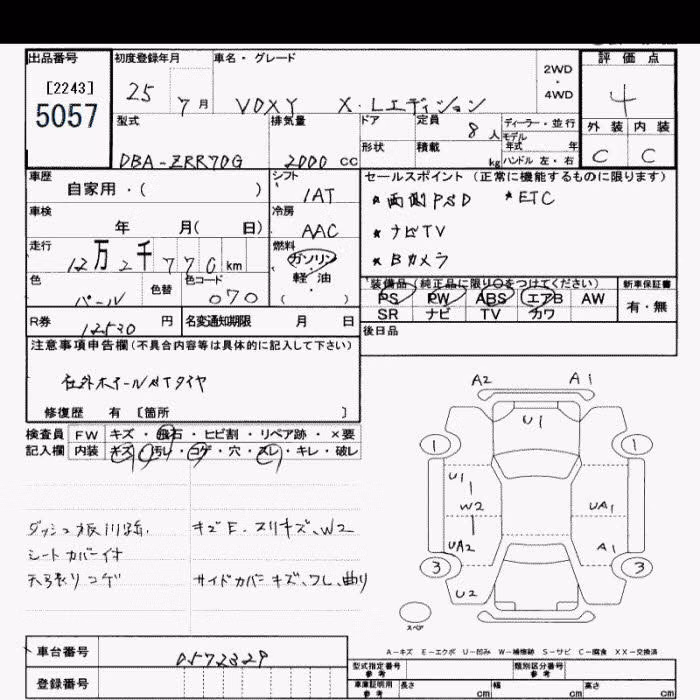 出品番号 初度登録年月 車名・グレード 2WD・4WD 評価点
[2243]
5057
25 7月 VOXY X・Lエディション 4
型式 排気量 ドア 定員 8人 ディーラー・並行 外装 内装
モデル年式 年
形状 積載 kg ハンドル 左・右
DBA-ZRR70G 2000 cc C C
車歴 シフト セールスポイント (正常に機能するものに限ります)
自家用・( ) IAT
* 両側PSD * ETC
車検 冷房
年 月( 日) AAC * ナビTV
走行 燃料
12万2千770km ガソリン * Bカメラ
色 色替 色コード 軽・油
パール 070 ( )
装備品(純正品に限り〇をつけてください) 新車保証書
PS PW ABS エアB AW 有・無
SR ナビ TV カワ
R券 12530 円 名変通知期限 月 日
後日品
注意事項申告欄(不具合内容等は具体的に記入して下さい)
社外ホイールMTタイヤ
修復歴 有 [箇所 ]
検査員 FW キズ・飛石・ヒビ割・リペア跡・×要
記入欄 内装 キズ・汚レ・コゲ・穴・スレ・キレ・破レ
A2 A1
U1
1 1
U1
W2 UA1
UA2 A1
3 3
U2
スペア
キズE・スリキズ、W2
シートカバー付
天張りコゲ サイドカバーキズ、ワレ、曲り
A-キズ E-エクボ U-凹み W-補修跡 S-サビ C-腐食 XX-交換済
車台番号 0572329
型式指定番号 参考 類別区分番号 参考
登録番号
車庫証明用 参考 長さ cm 幅 cm 高さ cm